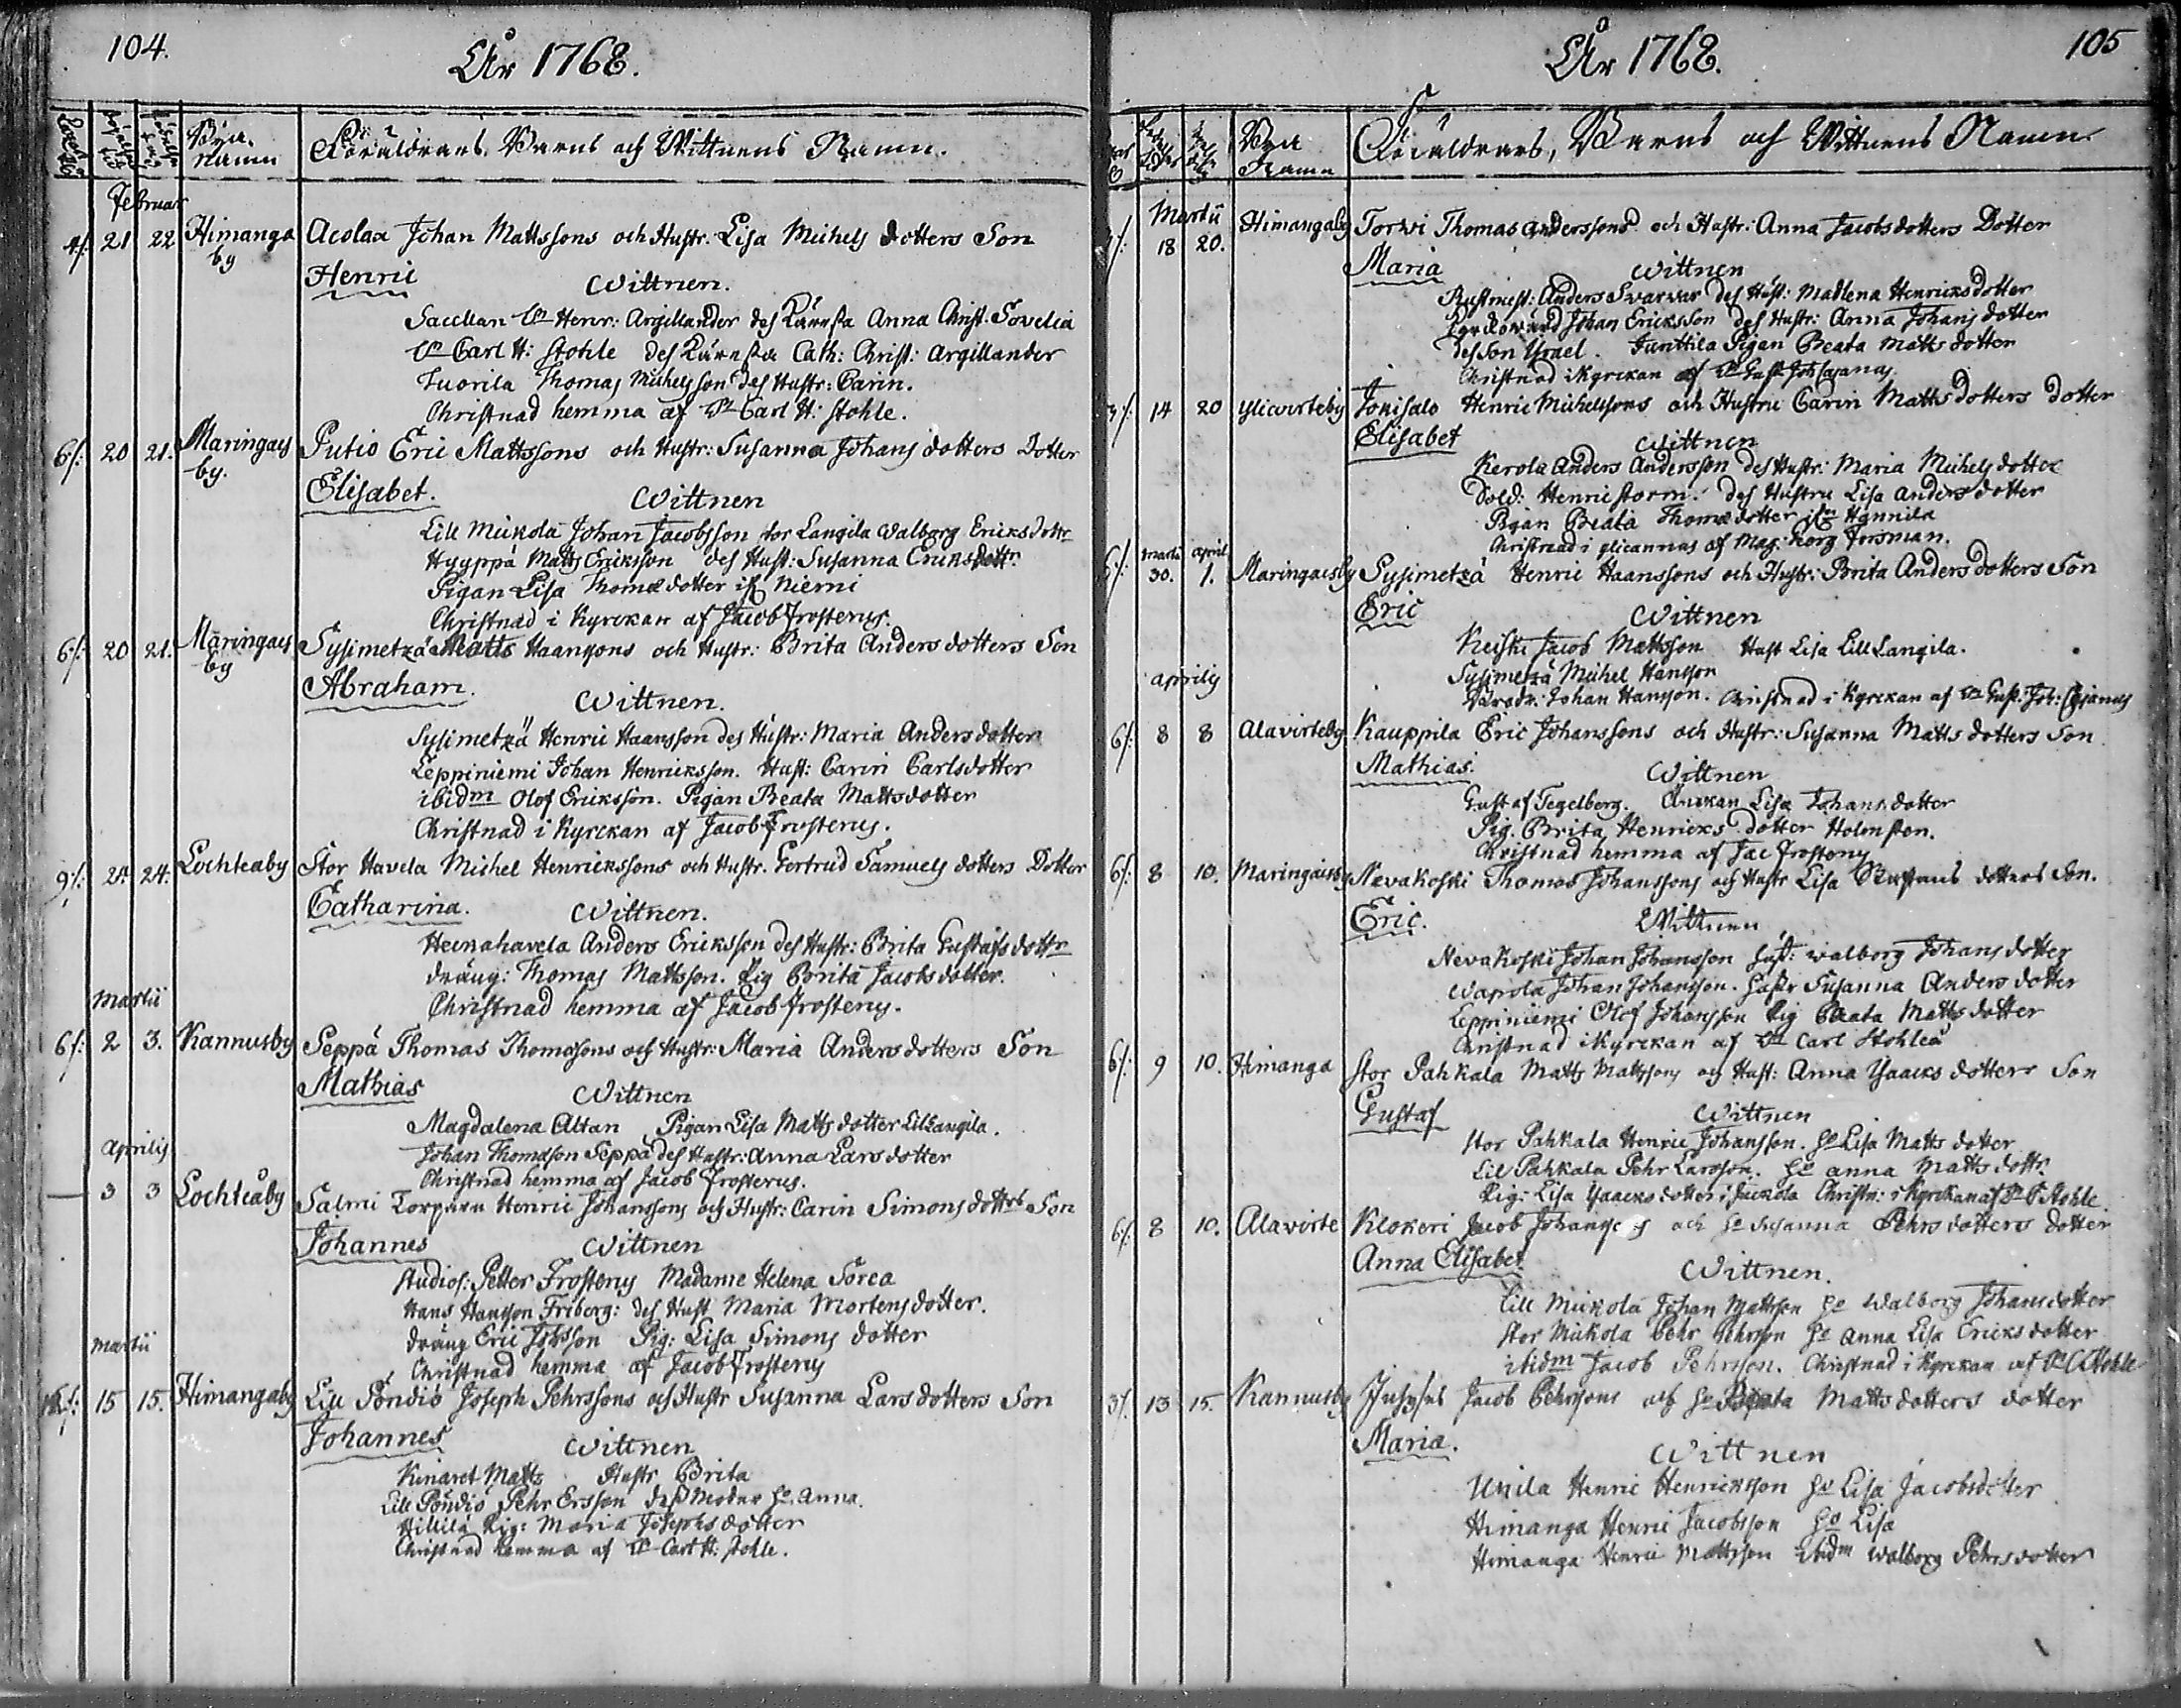 104.
År 1768.
Bya namn
Föräldrars, Barns och Wittnens Namn.
Februar
4/: 21 22 Himanga by Acolax Johan Mattssons och Hustr. Lisa Michels dotters Son
Henric Wittnen.
Sacellan Hr Henr: Argillander des Käresta Anna Christ. Sovelia
Hr Carl H: Stohle des Käresta Cath: Christ: Argillander
Tuorila Thomas Michelsson des Hustr: Carin.
Christnad hemma af Hr Carl H: Stohle.
6/: 20 21. Maringais by. Putio Eric Mattssons och Hustr: Susanna Johans dotters Dotter
Elisabet. Wittnen
Lill Mickola Johan Jacobsson Stor Langila Walborg Ericks dottr
Hyyppä Matts Ericksson des Hust: Susanna Ericksdottr
Pigan Lisa Thomæ dotter Niemi
Christnad i Kyrckan af Jacob Frosterus.
6/: 20 21. Maringais by Sysimetzä Matts Haanssons och Hustr: Brita Anders dotters Son
Abraham. Wittnen.
Sysimetzä Henric Haansson des Hustr: Maria Anders dotter
Leppiniemi Johan Henricksson. Hust: Carin Carlsdotter
ibidm Olof Ericksson. Pigan Beata Mattsdotter
Christnad i Kyrckan af Jacob Frosterus.
9/: 24 24. Lochteaby Stor Havela Michel Henrickssons och Hustr. Gertrud Samuels dotters Dotter
Catharina. Wittnen.
Heinahavela Anders Ericksson des Hustr: Brita Gustafs dottr
dräng: Thomas Mattsson. Pig Brita Jacobs dotter.
Christnad hemma af Jacob Frosterus.
Martii
6/: 2 3. Kannusby Seppä Thomas Thomassons och Hustr: Maria Anders dotters Son
Mathias Wittnen
Magdalena Altan Pigan Lisa Matts dotter Lill Langila.
Johan Thomasson Seppä des Hustr: Anna Lars dotter
Christnad hemma af Jacob Frosterus.
Aprilis
— 3 3 Lochteåby Salmi Torparn Henric Johanssons och Hustr: Carin Simons dottrs Son
Johannes Wittnen
Studios: Petter Frosterus Madame Helena Forea
Hans Hansson Friberg: des Hust Maria Mortens dotter.
dräng Eric Johsson Pig: Lisa Simons dotter
Christnad hemma af Jacob Frosterus
Martii
15 15. Himangaby Lill Pöndiö Joseph Pehrssons och Hustr Susanna Lars dotters Son
Johannes Wittnen
Kinaret Matts Hustr Brita
Lill Pöndiö Pehr Ersson des Moder Ho. Anna.
Hillilä Pig: Maria Josephs dotter
Christnad hemma af Hr Carl H: Stohle.
105
År 1768.
Bya Namn
Föräldrars, Barns och Wittnens Namn
Martii
18 20. Himangaby Torvi Thomas Anderssons och Hustr: Anna Jacobs dotters Dotter
Maria Wittnen
Rustmest: Anders Svarvar des Hust: Madlena Henricksdotter
Johan Ericksson des Hustr: Anna Johans dotter
des Son Ysrael. Junttila Pigan Beata Matts dotter
Christnad i Kyrckan af Hr Gust. Joh: Cajanus
3/: 14 20 Yliwirteby Jokisalo Henric Michelssons och Hustru Carin Matts dotters dotter
Elisabet Wittnen
Kerola Anders Andersson des Hustr: Maria Michels dotter
Sold: Henric Storm. des Hustru Lisa Anders dotter
Pigan Beata Thomæ dotter Hannila
Christnad i Ylicannus af Mag: Forsman.
Martii April
6/: 30. 1. Maringaisby Sysimetzä Henric Haanssons och Hustr: Brita Anders dotters Son
Eric Wittnen
Keiski Jacob Mattsson Hust Lisa Lill Langila.
Sysimetzä Michel Hansson
Johan Hansson. Christnad i Kyrckan af Hr Gust: Joh: Cajanus
Aprilis
6/: 8 8 Alavirteby Kauppila Eric Johanssons och Hustr: Susanna Matts dotters Son
Mathias. Wittnen
Gustaf Tegelberg. Änckan Lisa Johans dotter
Pig. Brita Henricks dotter Holmsten.
Christnad hemma af Jac Frosterus
6/: 8 10. Maringaisby Nevakoski Thomas Johanssons och Hustr Lisa Staffans dotters Son.
Eric. Wittnen
Nevakoski Johan Johansson Hust: Walborg Johans dotter
Wapola Johan Johansson. Hustr Susanna Anders dotter
Leppiniemi Olof Johansson Pig Beata Matts dotter
Christnad i Kyrckan af Hr Carl Stohleà
6/: 9 10. Himanga Stor Pahkala Matts Mattssons och Hust: Anna Ysaacs dotters Son
Gustaf Wittnen
Stor Pahkala Henric Johansson. Ho Lisa Matts dotter
Lill Pahkala Pehr Larsson. Ho Anna Matts dottr.
Pig: Lisa Ysaacks dotter i Juckola Christn: i Kyrckan af Hr C Stohle.
6/: 8 10. Alavirte Klokeri Jacob Johanssons och Ho Susanna Pehrs dotters dotter
Anna Elisabet. Wittnen.
Lill Mickola Johan Mattsson Ho Walborg Johansdotter
Stor Mickola Pehr Pehrsson Ho Anna Lisa Ericks dotter
ibidm Jacob Pehrsson. Christnad i Kyrckan af Hr C Stohle
3/: 13 15. Kannusby Jacob Pehrssons och Ho Beata Matts dotters dotter
Maria. Wittnen
Unila Henric Henricksson Ho Lisa Jacobsdotter
Himanga Henric Jacobsson Ho Lisa
Himanga Henric Mattsson Ibidm Walborg Pehrsdotter